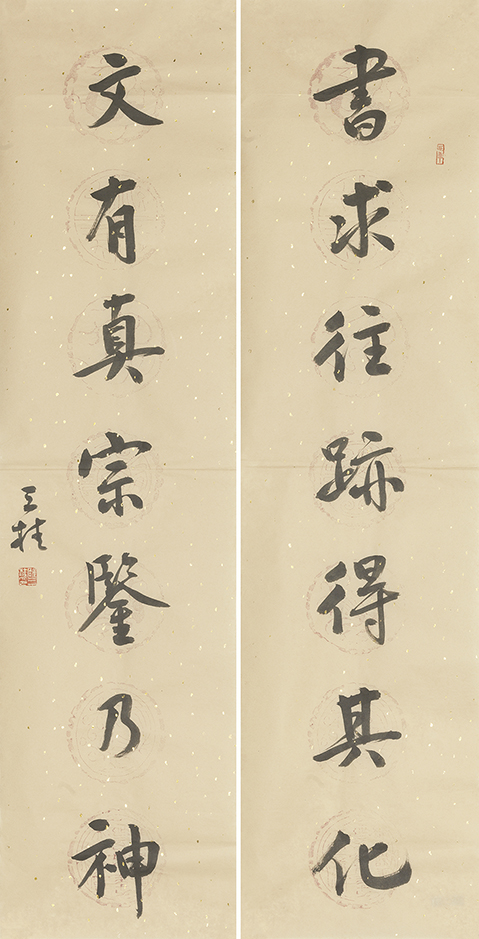 書求往跡得其化
文有真宗鑒乃神